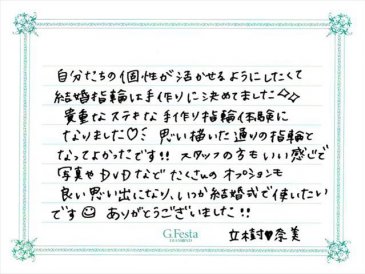 自分たちの個性が活かせるようにしたくて
結婚指輪は手作りに決めてました✧✧
貴重なステキな手作り指輪体験に
なりました♡! 思い描いた通りの指輪と
なってよかったです!! スタッフの方もいい感じで
写真やDVDなどたくさんのオプションも
良い思い出になり、いつか結婚式で使いたい
です☺ ありがとうございました!!
G.Festa
DIAMOND
立樹♥奈美